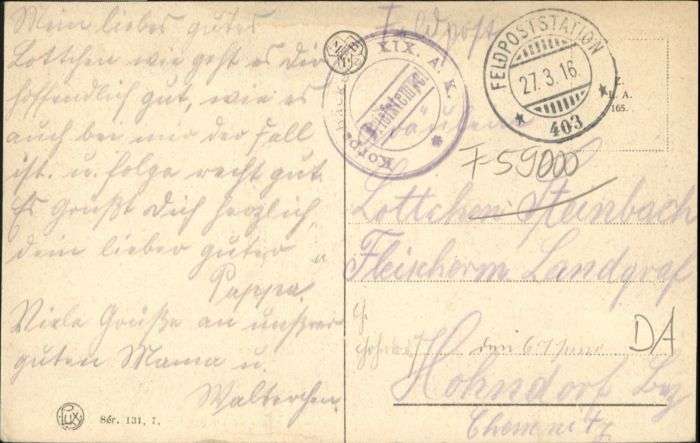 Mein liebes gutes
Lottchen wie geht es Dir
hoffendlich gut, wie es
auch bei mir der fall
ist. u. folge recht gut
Es Grüßt Dich herzlich
dein lieber guter
Pappa.
Viele Grüße an unßrer
guten Mama u.
Walterchen.
Sér. 131, 7.
Feldpost
XIX. A. K.
Briefstempel
FELDPOSTSTATION
27.3.16.
* 403 *
165.
F 59000
Fräulein
Lottchen Steinbach
Fleischerm. Landgraf
DA
Hohndorf Bez
Chemnitz